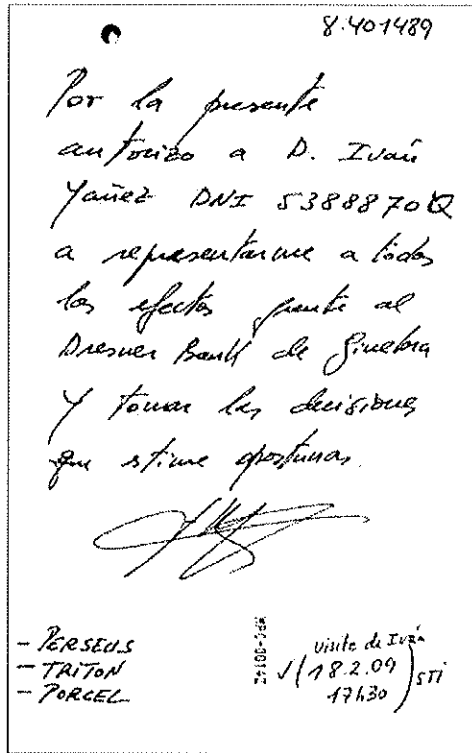 8.401489
Por la presente
autorizo a D. Iván
Yañez DNI 5388870Q
a representarme a todos
los efectos frente al
Dresner Bank de Ginebra
Y tomar las decisiones
que estime oportunas.
- PERSEUS
- TRITON
- PORCEL
visite de Iván
√(18.2.09) STi
17h30